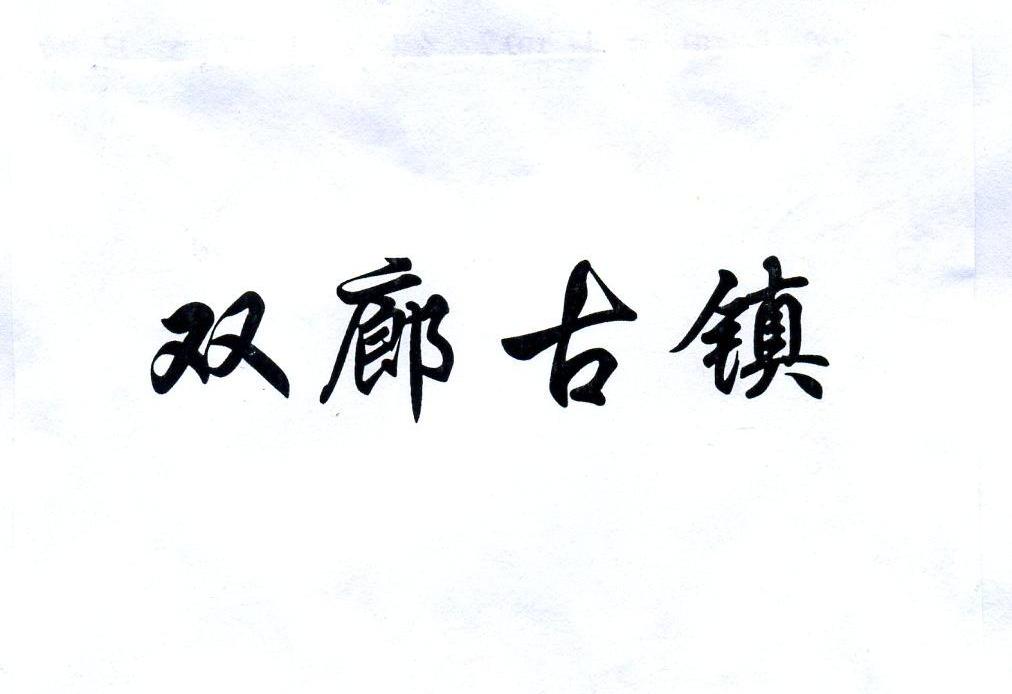 双廊古镇